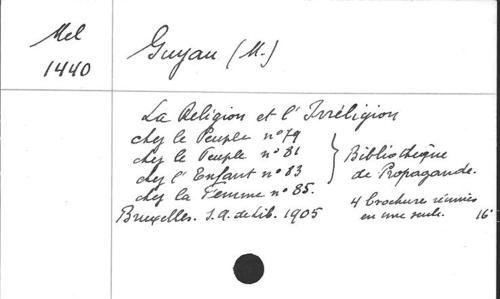 Mel
1440
Guyau (M.)
La Religion et l'Irréligion
chez le Peuple n° 79
chez le Peuple n° 81
chez l'Enfant n° 83
chez la Femme n° 85.
Bibliothèque
de Propagande.
Bruxelles. S.A. de Lib. 1905
4 brochures réunies
en une seule. 16°